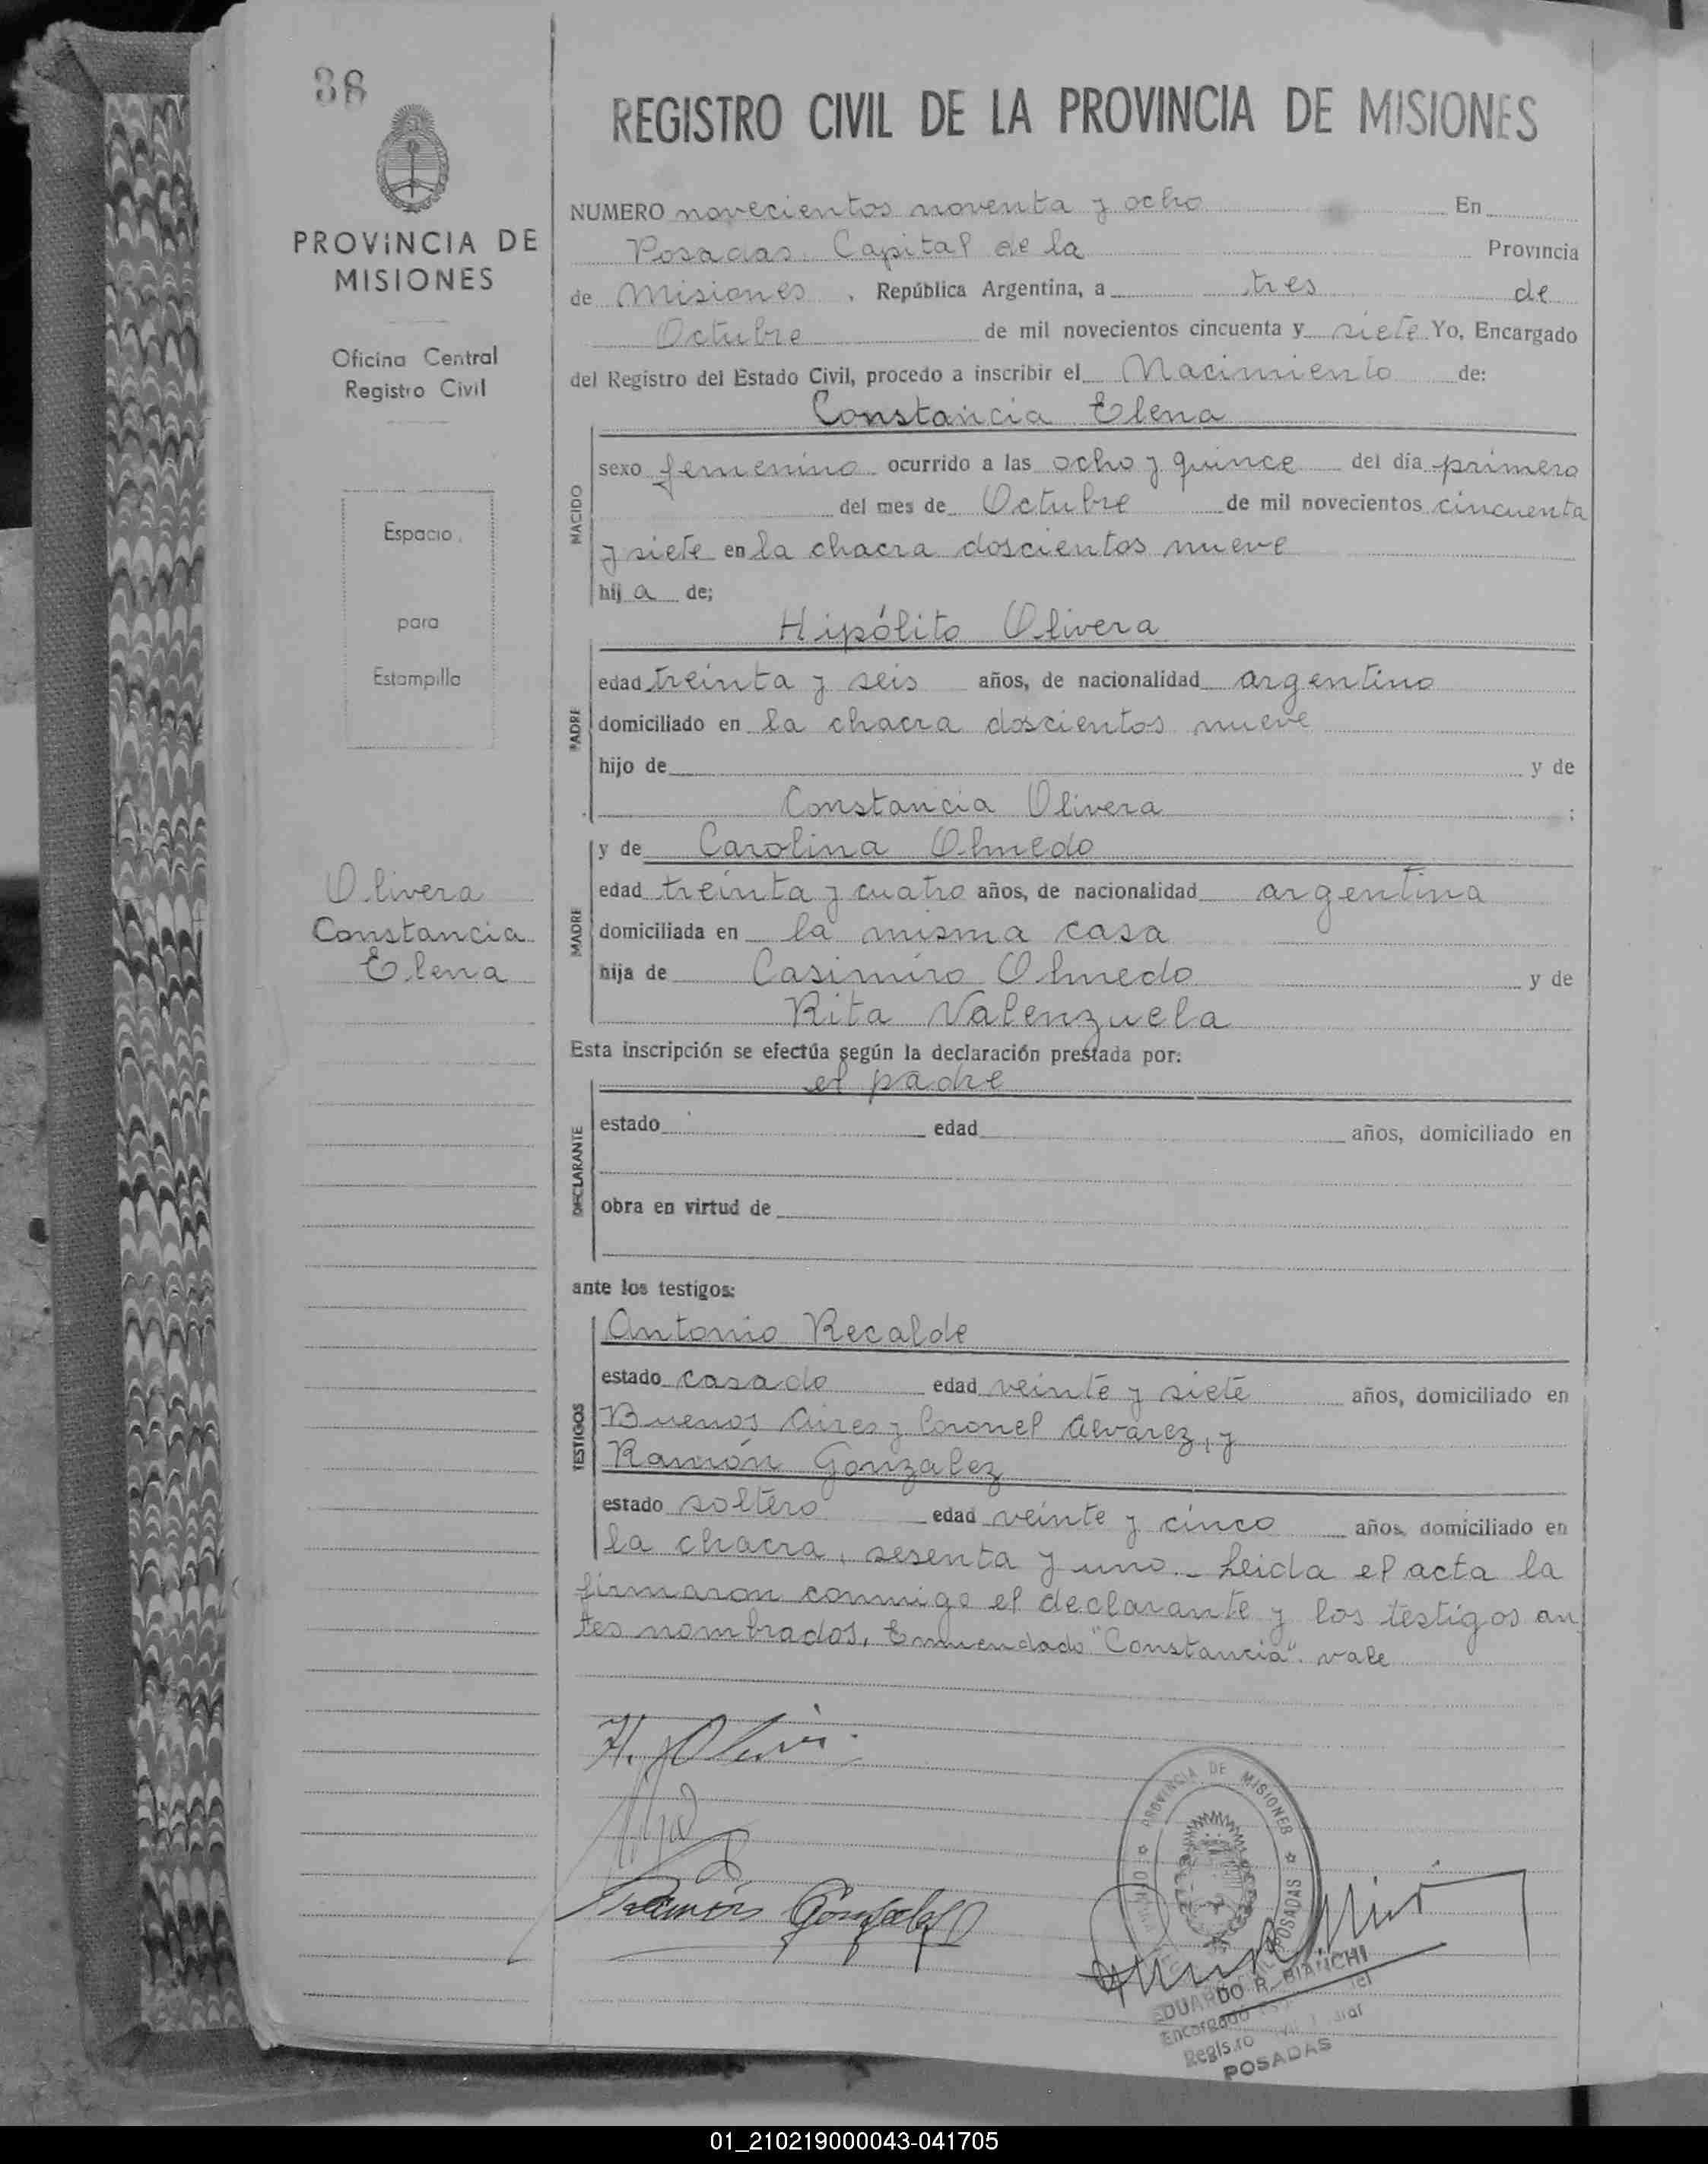 38
PROVINCIA DE
MISIONES
Oficina Central
Registro Civil
Espacio
para
Estampilla
Olivera
Constancia
Elena
REGISTRO CIVIL DE LA PROVINCIA DE MISIONES
NUMERO novecientos noventa y ocho En
Posadas. Capital de la Provincia
de Misiones, República Argentina, a tres de
Octubre de mil novecientos cincuenta y siete Yo, Encargado
del Registro del Estado Civil, procedo a inscribir el Nacimiento de:
Constancia Elena
NACIDO
sexo femenino ocurrido a las ocho y quince del día primero
del mes de Octubre de mil novecientos cincuenta
y siete en la chacra doscientos nueve
hij a de;
Hipólito Olivera
PADRE
edad treinta y seis años, de nacionalidad argentino
domiciliado en la chacra doscientos nueve
hijo de y de
Constancia Olivera ;
y de Carolina Olmedo
MADRE
edad treinta y cuatro años, de nacionalidad argentina
domiciliada en la misma casa
hija de Casimiro Olmedo y de
Rita Valenzuela
Esta inscripción se efectúa según la declaración prestada por:
el padre
DECLARANTE
estado edad años, domiciliado en
obra en virtud de
ante los testigos:
TESTIGOS
Antonio Recalde
estado casado edad veinte y siete años, domiciliado en
Buenos Aires y Coronel Alvarez, y
Ramón Gonzalez
estado soltero edad veinte y cinco años, domiciliado en
la chacra, sesenta y uno.- Leida el acta la
firmaron conmigo el declarante y los testigos an
tes nombrados, Enmendado "Constancia". vale
H. Olivera
Ramón Gonzalez
PROVINCIA DE MISIONES
POSADAS
EDUARDO R. BIANCHI
Encargado
POSADAS
01_210219000043-041705